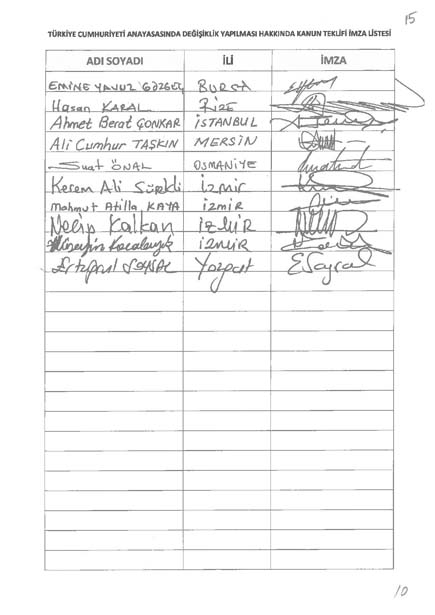 15
TÜRKİYE CUMHURİYETİ ANAYASASINDA DEĞİŞİKLİK YAPILMASI HAKKINDA KANUN TEKLİFİ İMZA LİSTESİ
ADI SOYADI İLİ İMZA
EMİNE YAVUZ GÖZGEÇ BURSA
Hasan KARAL RİZE
Ahmet Berat ÇONKAR İSTANBUL
Ali Cumhur TAŞKIN MERSİN
Suat ÖNAL OSMANİYE
Kerem Ali Sürekli İzmir
Mahmut Atilla KAYA İzmir
Necip Kalkan İZMİR
Hüseyin Kocabıyık İZMİR
Ertuğrul SOYSAL Yozgat ESoysal
10